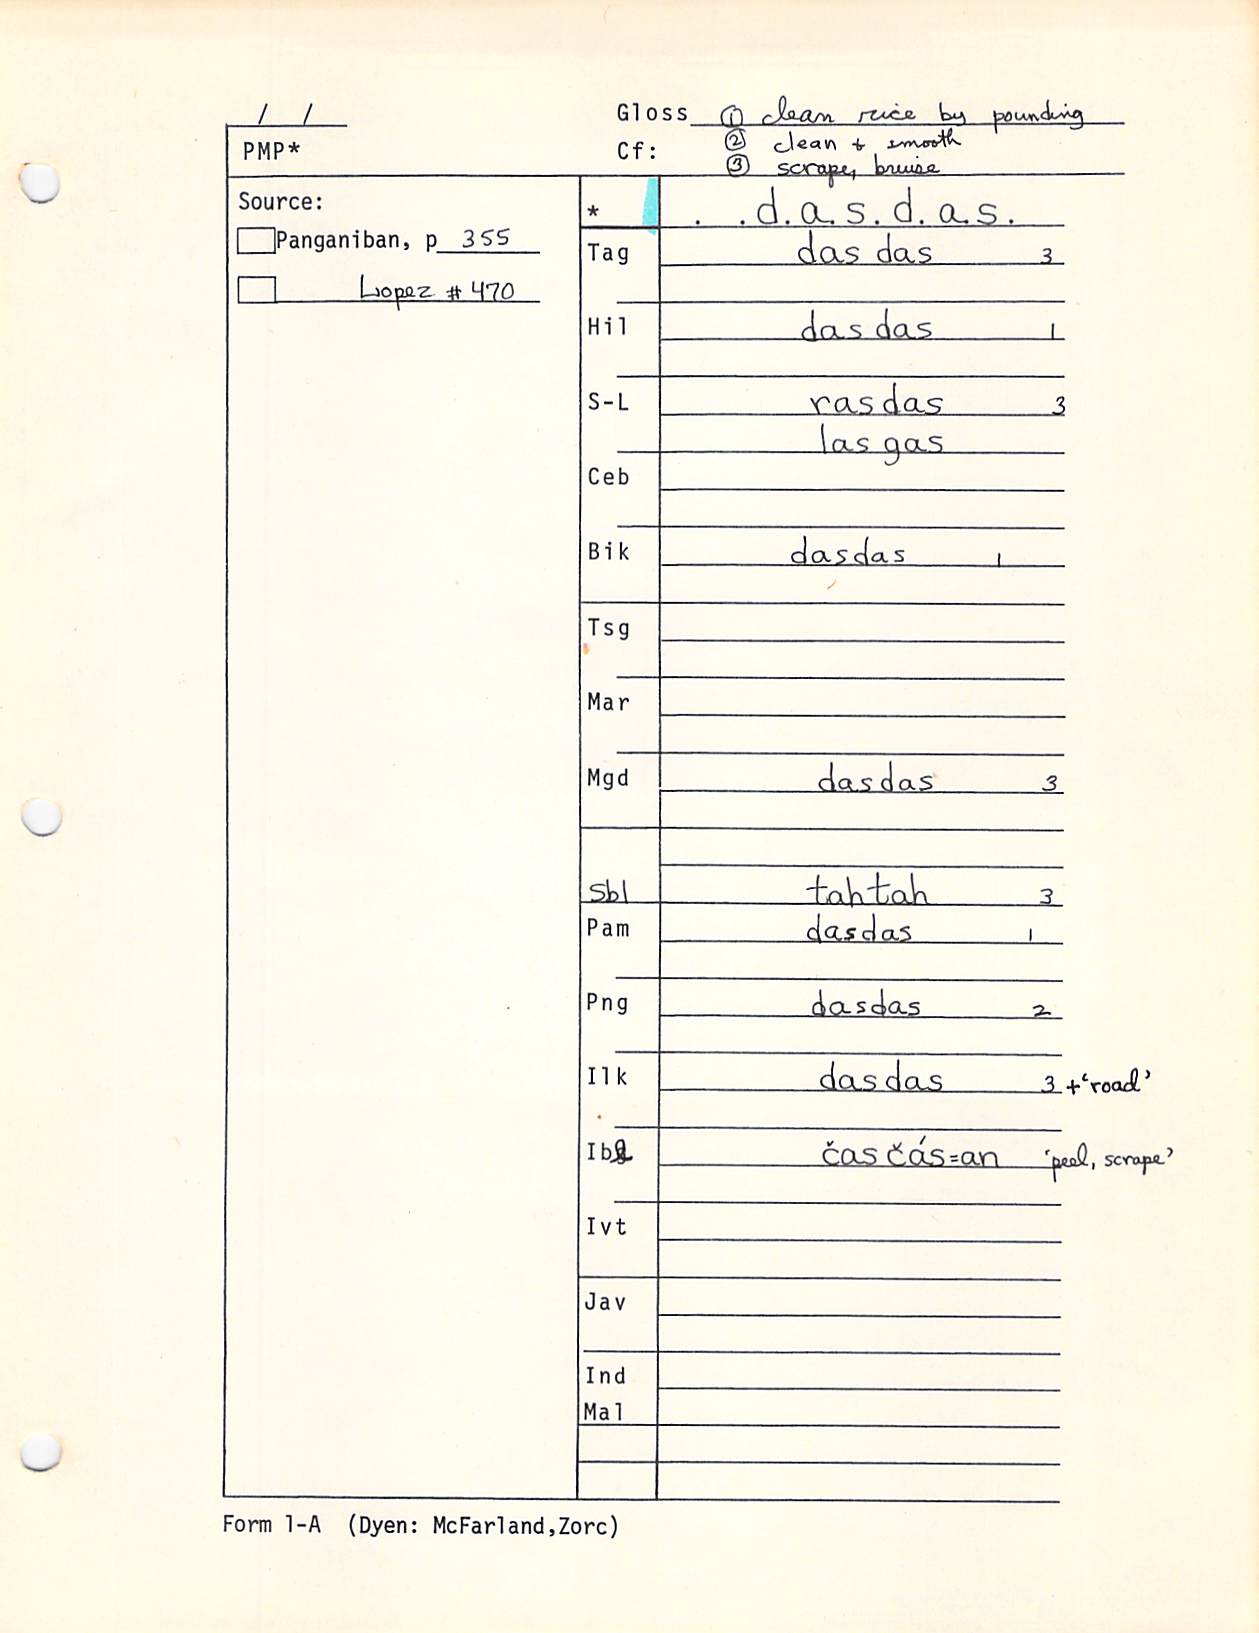 / /
Gloss ① clean rice by pounding
PMP*
Cf: ② clean + smooth
③ scrape, bruise
Source:
* . .d.a.s.d.a.s.
Panganiban, p 355
Tag dasdas 3
Lopez # 470
Hil dasdas 1
S-L rasdas 3
lasgas
Ceb
Bik dasdas 1
Tsg
Mar
Mgd dasdas 3
Sbl tahtah 3
Pam dasdas 1
Png dasdas 2
Ilk dasdas 3 + ‘road’
Ibl časčás=an ‘peel, scrape’
Ivt
Jav
Ind
Mal
Form 1-A (Dyen: McFarland,Zorc)